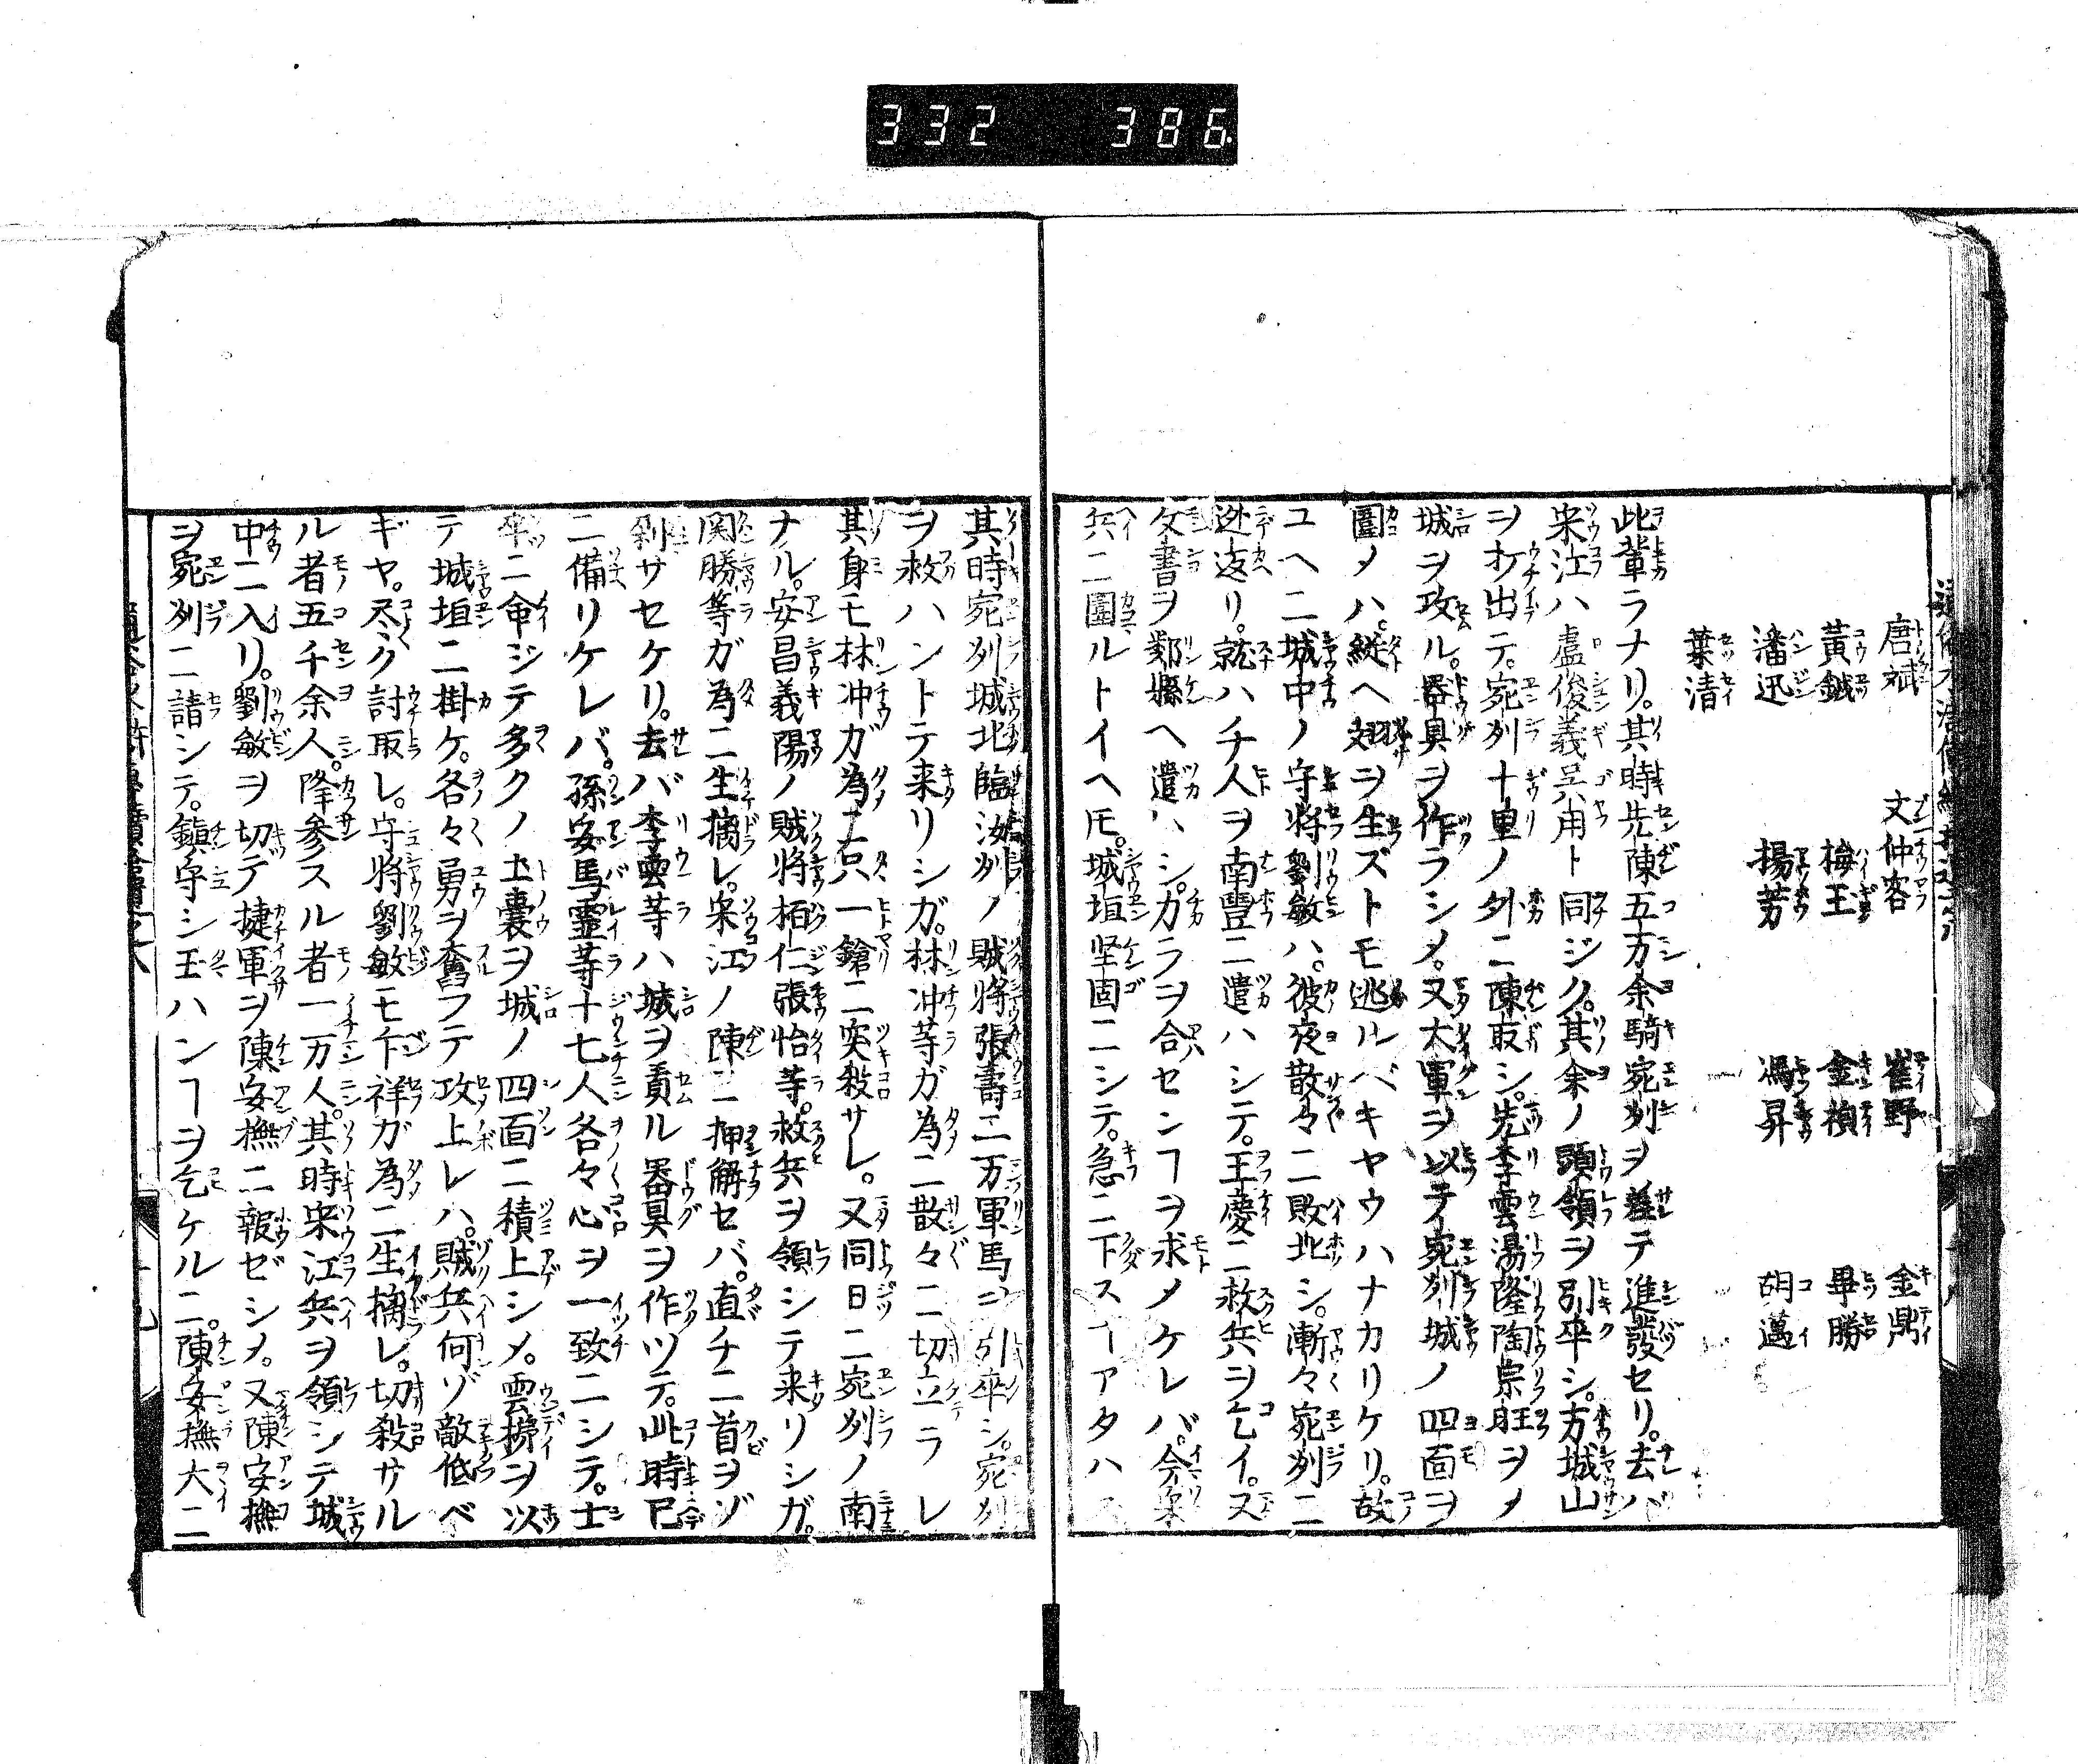 332 386
唐斌 文仲容 崔野 金鼎
黄鉞 梅玉 金禎 畢勝
潘迅 揚芳 馮昇 胡邁
葉清
此輩ラナリ。其時先陳五万余騎宛列ヲ差テ進發セリ。去バ
宋江ハ盧俊義呉用ト同ジク。其余ノ頭領ヲ引卒シ。方城山
ヲ打出テ。宛列十里ノ外ニ陳取シ。先李雲湯隆陶宗旺ヲメ
城ヲ攻ル。器具ヲ作ラシメ。又大軍ヲ以テ宛列城ノ四面ヲ
圍メハ。縦ヘ翅ヲ生ズトモ逃ルベキヤウハナカリケリ。故
ユヘニ城中ノ守将劉敏ハ。彼夜散々ニ敗北シ。漸々宛列ニ
逃返リ。就ハチ人ヲ南豐ニ遣ハシテ。王慶ニ救兵ヲ乞イ。又
文書ヲ鄰縣ヘ遣ハシ。力ラヲ合センヿヲ求メケレバ。今宋
兵ニ圍ルトイヘ𪜈。城垣堅固ニシテ。急ニ下スヿアタハ
其時宛列城北臨汝列ノ賊将張壽二万軍馬ヲ引卒シ。宛列
ヲ救ハントテ来リシガ。林冲等ガ為ニ散々ニ切立ラレ
其身モ林冲ガ為ニ只一鎗ニ突殺サレ。又同日ニ宛列ノ南
ナル。安昌義陽ノ賊将栢仁張怡等。救兵ヲ領シテ来リシガ。
関勝等ガ為ニ生擒レ。宋江ノ陳ニ押解セバ。直チニ首ヲゾ
剁サセケリ。去バ李雲等ハ城ヲ責ル器具ヲ作ツテ。此時已
ニ備リケレバ。孫安馬靈等十七人各々心ヲ一致ニシテ。士
卒ニ命ジテ多クノ土嚢ヲ城ノ四面ニ積上シメ。雲梯ヲ以
テ城垣ニ掛ケ。各々勇ヲ奮フテ攻上レハ。賊兵何ゾ敵低ベ
ギヤ。尽ク討取レ。守将劉敏モ卞祥ガ為ニ生擒レ。切殺サル
ル者五千余人。降参スル者一万人。其時宋江兵ヲ領シテ城
中ニ入リ。劉敏ヲ切デ捷軍ヲ陳安撫ニ報ゼシメ。又陳安撫
ヲ宛列ニ請シテ。鎮守シ玉ハンヿヲ乞ケルニ。陳安撫大ニ